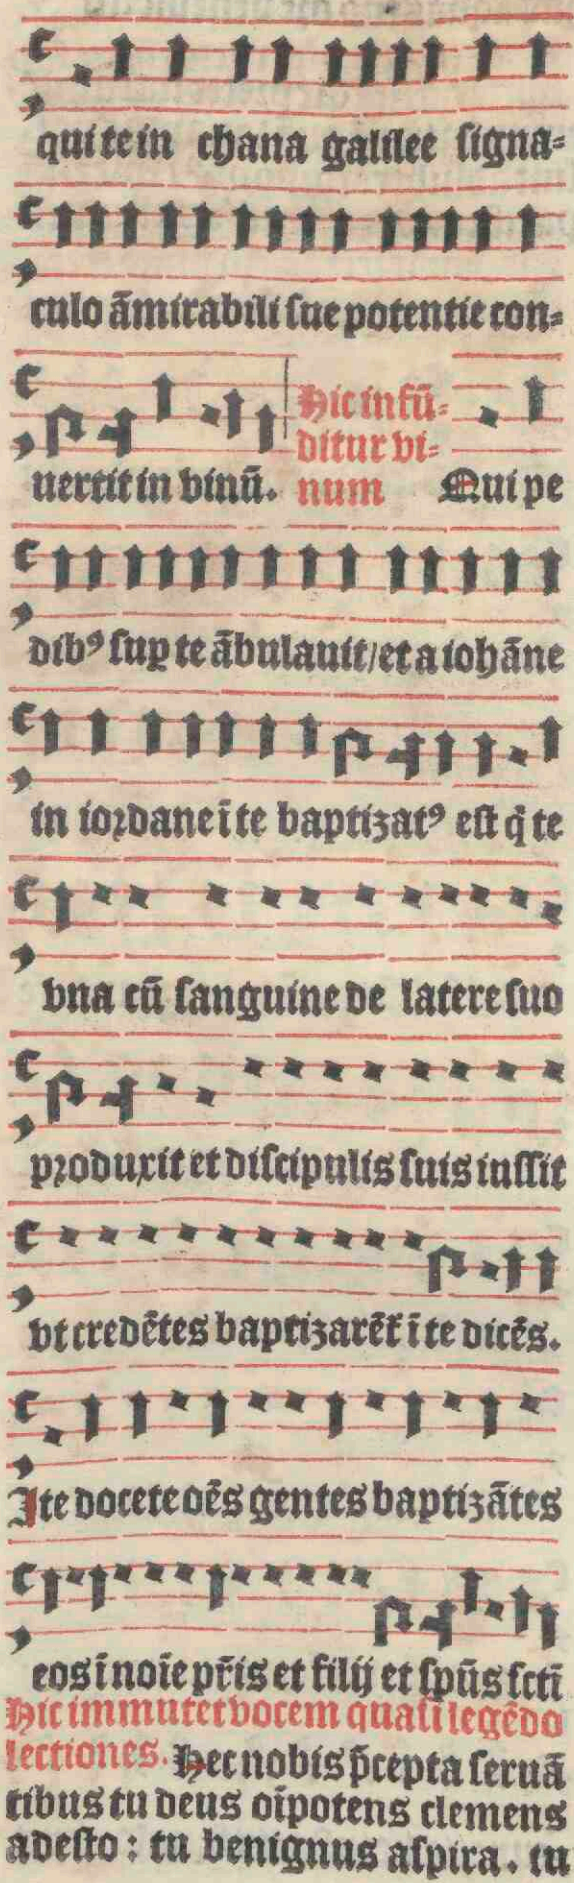 qui te in chana galilee signa=
culo āmirabili sue potentie con=
uertit in vinū.
Hic infū=
ditur vi=
num
Qui pe
dibꝰ sup te ābulauit/et a iohāne
in iordane ī te baptizatꝰ est q̄ te
vna cū sanguine de latere suo
produxit et discipulis suis iussit
vt credētes baptizarēt᷑ ī te dicēs.
Ite docete oēs gentes baptizātes
eos ī noīe pr̄is et filij et spūs scti
Hic immutet vocem quasi legēdo
lectiones. Hec nobis p̄cepta seruā
tibus tu deus oīpotens clemens
adesto: tu benignus aspira. tu